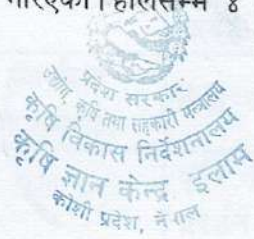 गरिएको । हालसम्म ४
प्रदेश सरकार
उद्योग, कृषि तथा सहकारी मन्त्रालय
कृषि विकास निर्देशनालय
कृषि ज्ञान केन्द्र, इलाम
कोशी प्रदेश, नेपाल